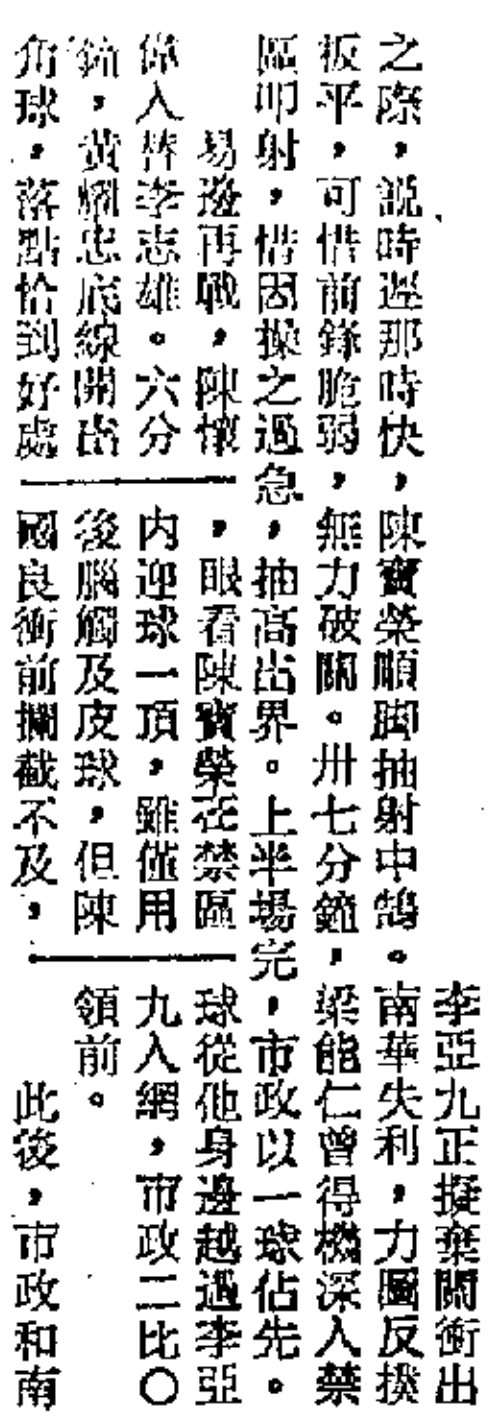 李亞九正擬棄關衝出
之際，說時遲那時快，陳寶榮順脚抽射中鵠。南華失利，力圖反撲
扳平，可惜前鋒脆弱，無力破關。卅七分鐘，梁能仁曾得機深入禁
區叩射，惜因操之過急，抽高出界。上半場完，市政以一球佔先。
易邊再戰，陳懷
偉入替李志雄。六分
鐘，黃忠底線開出
角球，落點恰到好處
，眼看陳寶榮在禁區
內迎球一頂，雖僅用
後腦觸及皮球，但陳
國良衝前攔截不及，
球從他身邊越過李亞
九入網，市政二比〇
領前。
此後，市政和南